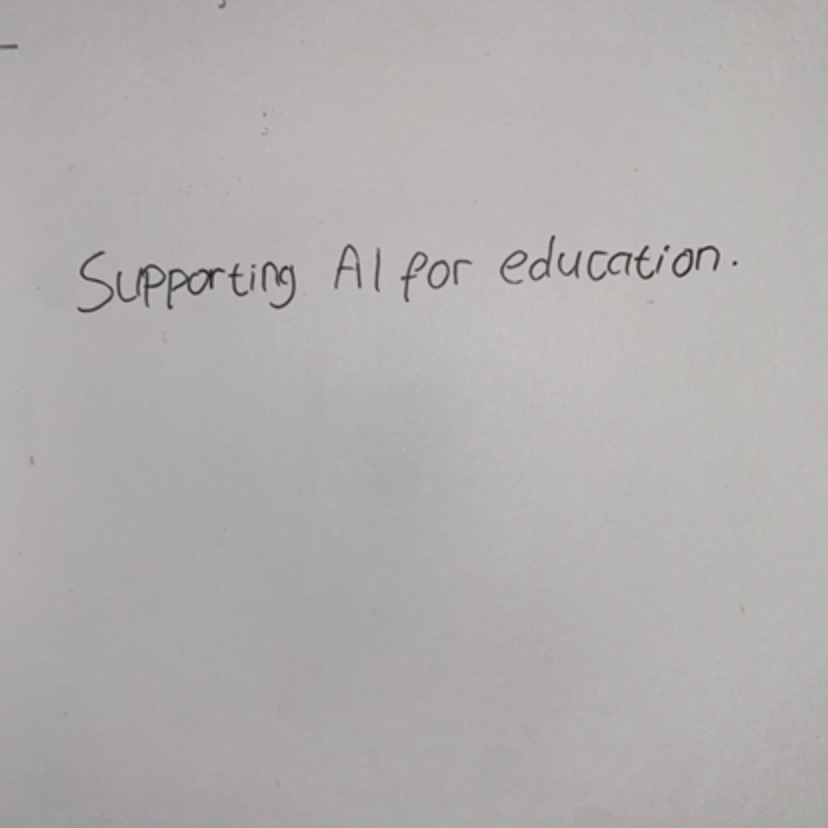 Supporting AI for education.